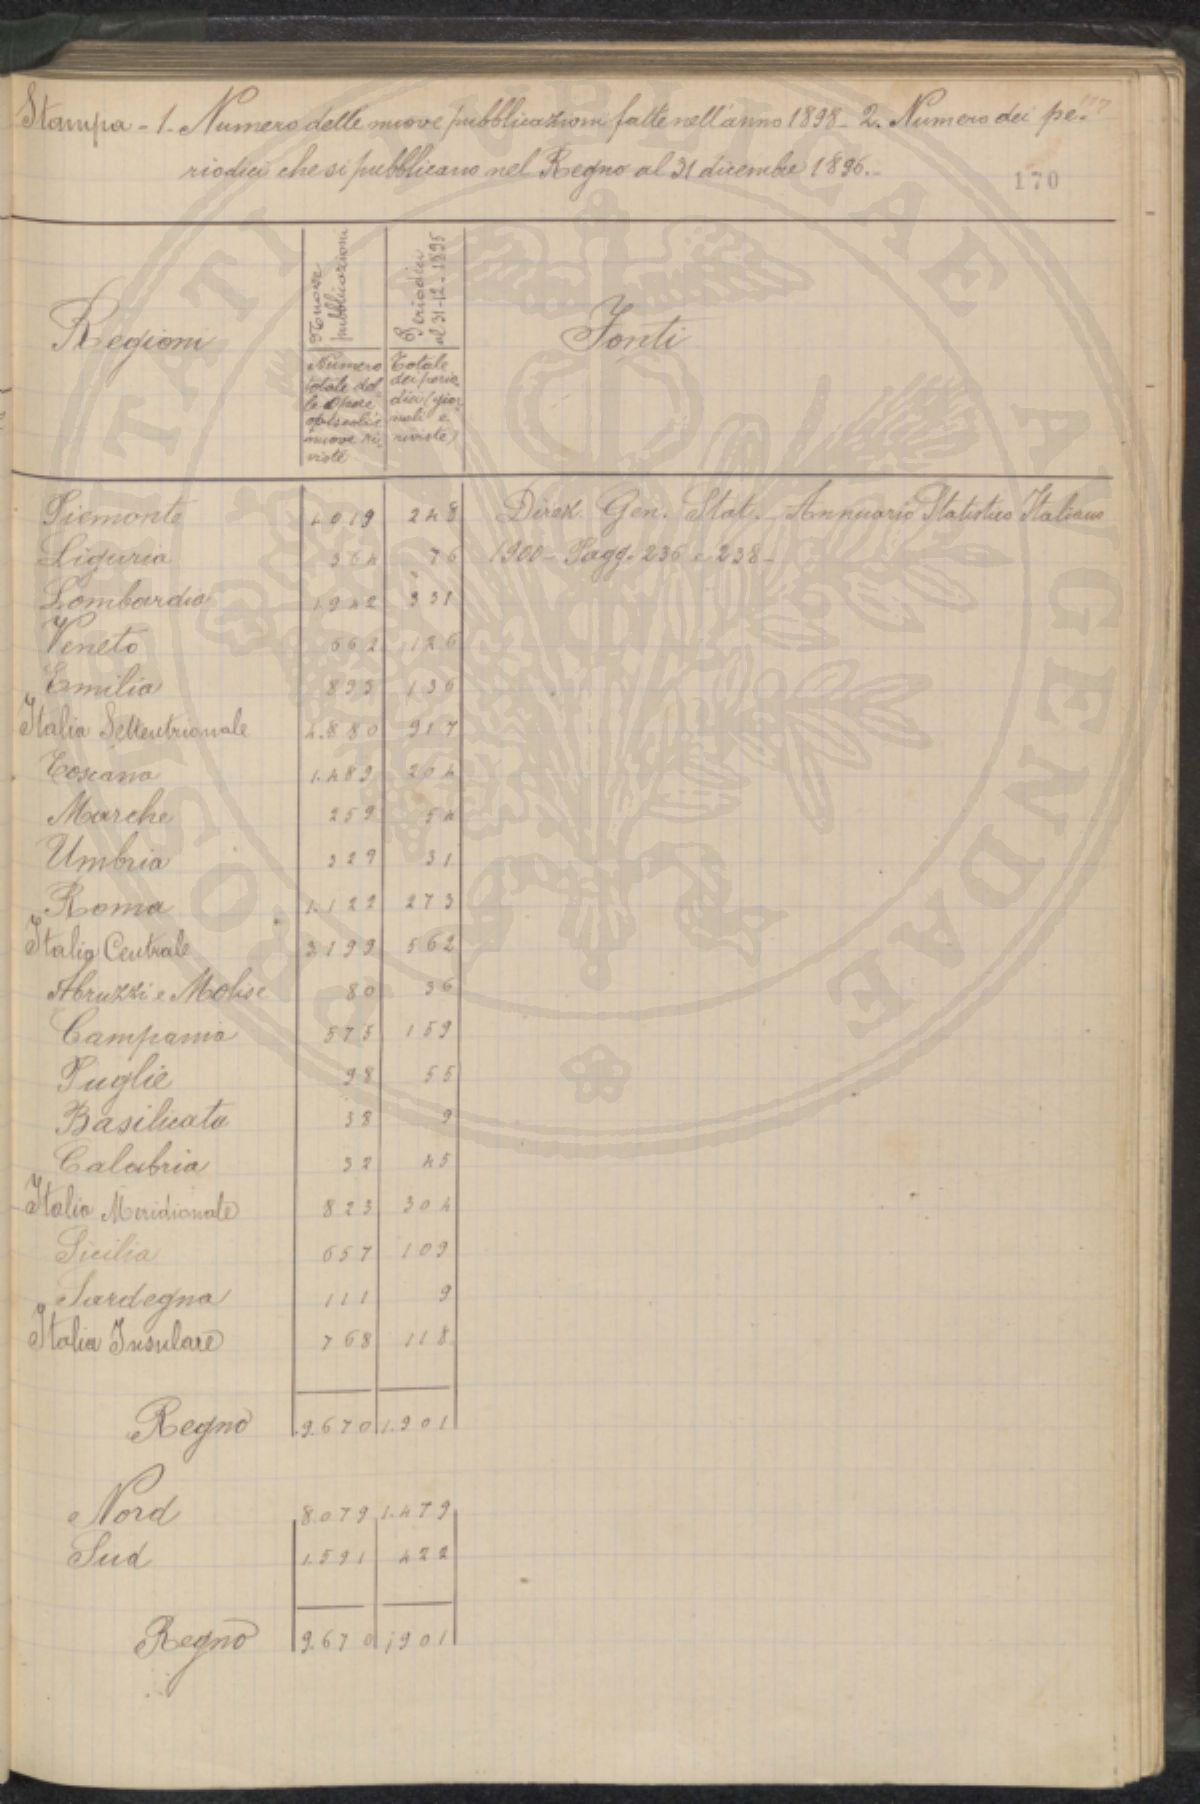 Stampa - 1. Numero delle nuove pubblicazioni fatte nell'anno 1898 - 2. Numero dei pe-
riodici che si pubblicano nel Regno al 31 dicembre 1896.-
170
Regioni
Nuove pubblicazioni
Periodici al 31-12-1895
Fonti
Numero totale del-
le opere
opuscoli e
nuove ri-
viste
Totale
dei perio-
dici (gior-
nali e
riviste)
Piemonte 1.019 248 Direz. Gen. Stat. - Annuario Statistico Italiano
Liguria 364 76 1900 - Pagg. 236 e 238 -
Lombardia 1.942 331
Veneto 662 126
Emilia 893 136
Italia Settentrionale 4.880 917
Toscana 1.489 204
Marche 259 54
Umbria 329 31
Roma 1.122 273
Italia Centrale 3.199 562
Abruzzi e Molise 80 36
Campania 575 159
Puglie 98 55
Basilicata 38 9
Calabria 32 45
Italia Meridionale 823 304
Sicilia 657 109
Sardegna 111 9
Italia Insulare 768 118
Regno 9.670 1.901
Nord 8.079 1.479
Sud 1.591 422
Regno 9.670 1901
PROSPERITATI PUBLICAE AUGENDAE